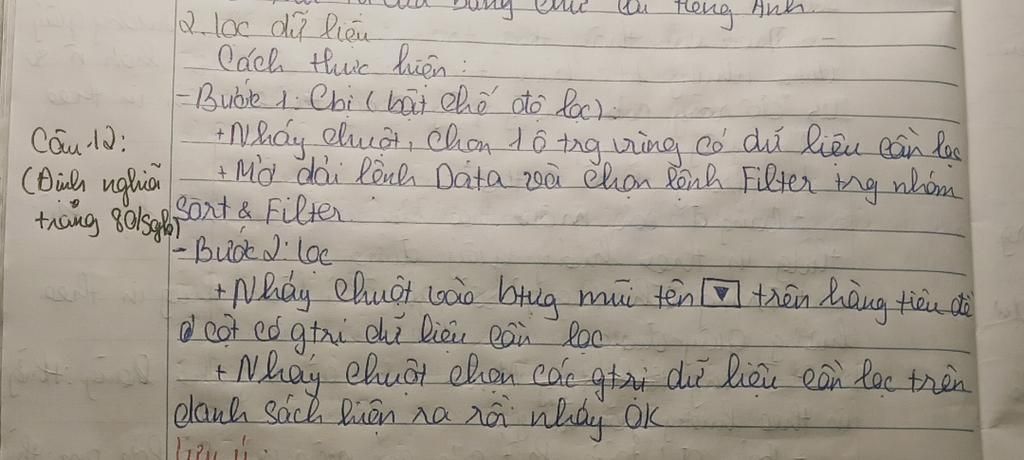 của bảng chữ cái tiếng Anh.
2. lọc dữ liệu
Cách thực hiện:
- Bước 1: Cbị (bật chế độ lọc).
+ Nháy chuột, chọn 1 ô trg vùng có dữ liệu cần lọc
Câu 12:
+ Mở dải lệnh Data và chọn lệnh Filter trg nhóm
(Định nghĩa
Sort & Filter
trang 80/sgk)
- Bước 2: lọc
+ Nháy chuột vào btug mũi tên ▼ trên hàng tiêu đề
ở cột có gtrị dữ liệu cần lọc
+ Nháy chuột chọn các gtrị dữ liệu cần lọc trên
danh sách hiện ra rồi nháy OK